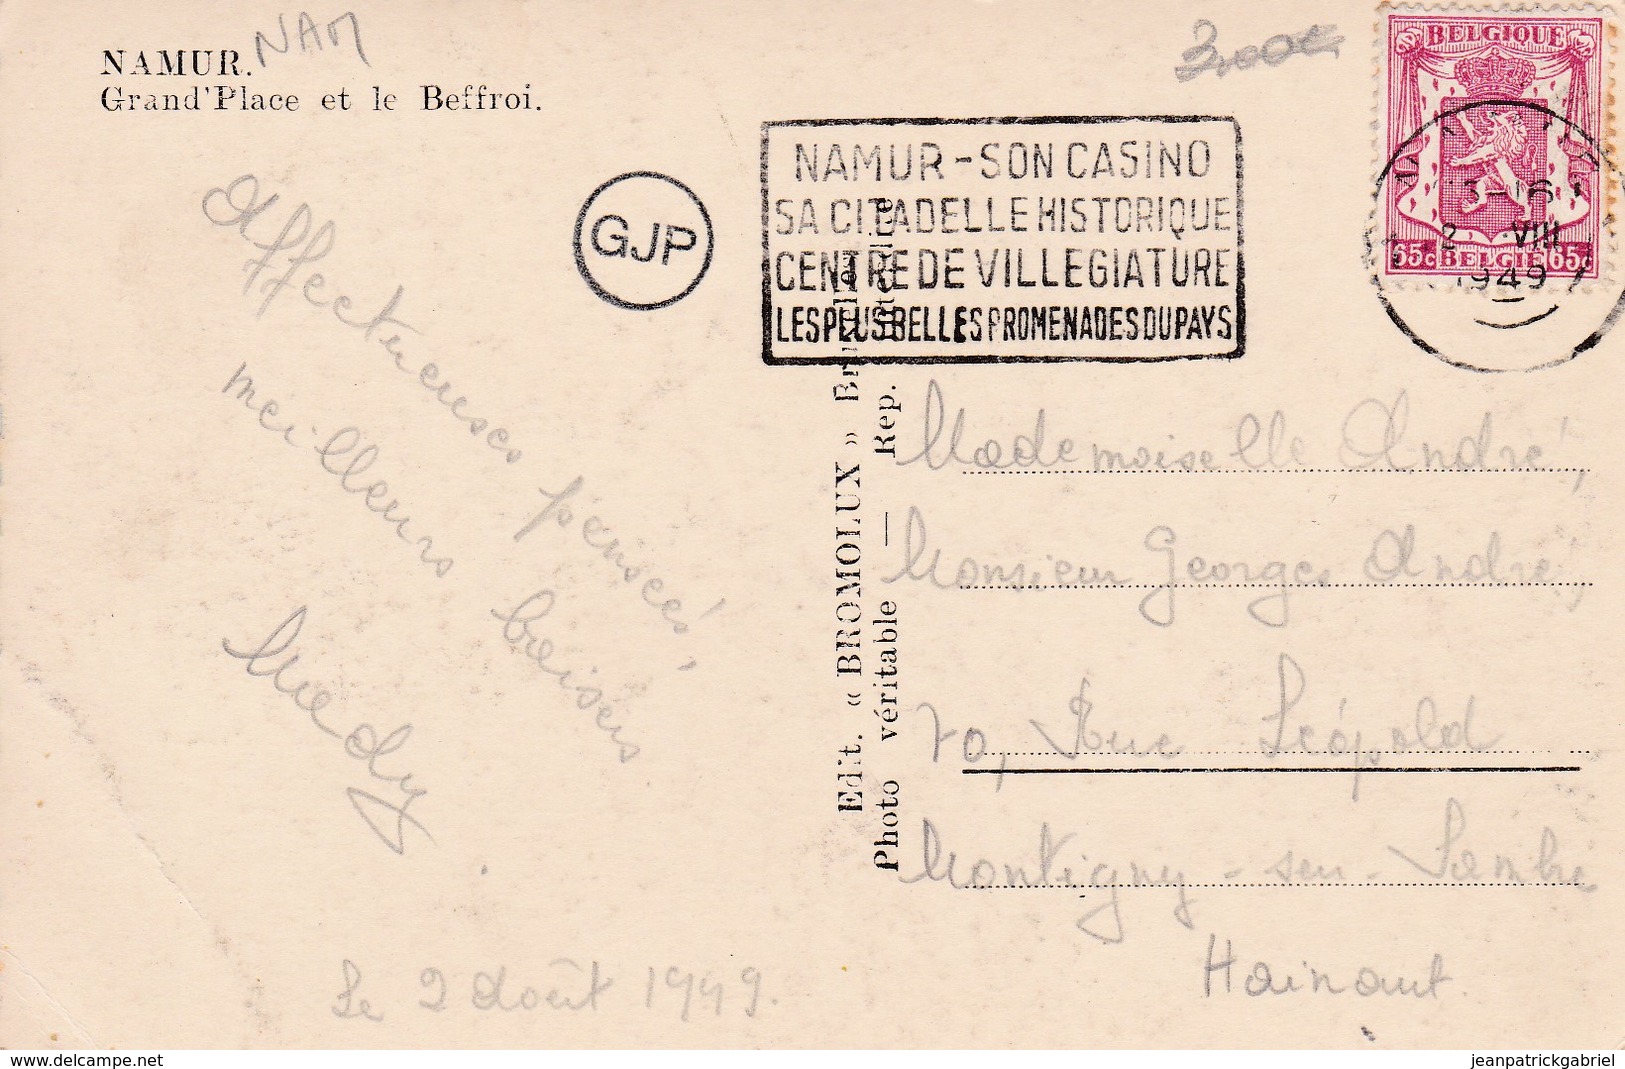 NAMUR.
NAM
Grand'Place et le Beffroi.
3,00€
BELGIQUE
65c BELGIE 65c
13-16
2 VIII
1949
GJP
NAMUR - SON CASINO
SA CITADELLE HISTORIQUE
CENTRE DE VILLEGIATURE
LES PLUS BELLES PROMENADES DU PAYS
Affectueuses pensées,
meilleurs baisers.
Mady.
Le 2 Août 1949.
Edit. « BROMOLUX » Bruxelles
Photo véritable — Rep. interdite
Mademoiselle André,
Monsieur Georges André,
70, Rue Léopold
Montigny-sur-Sambre
Hainaut.
www.delcampe.net
jeanpatrickgabriel